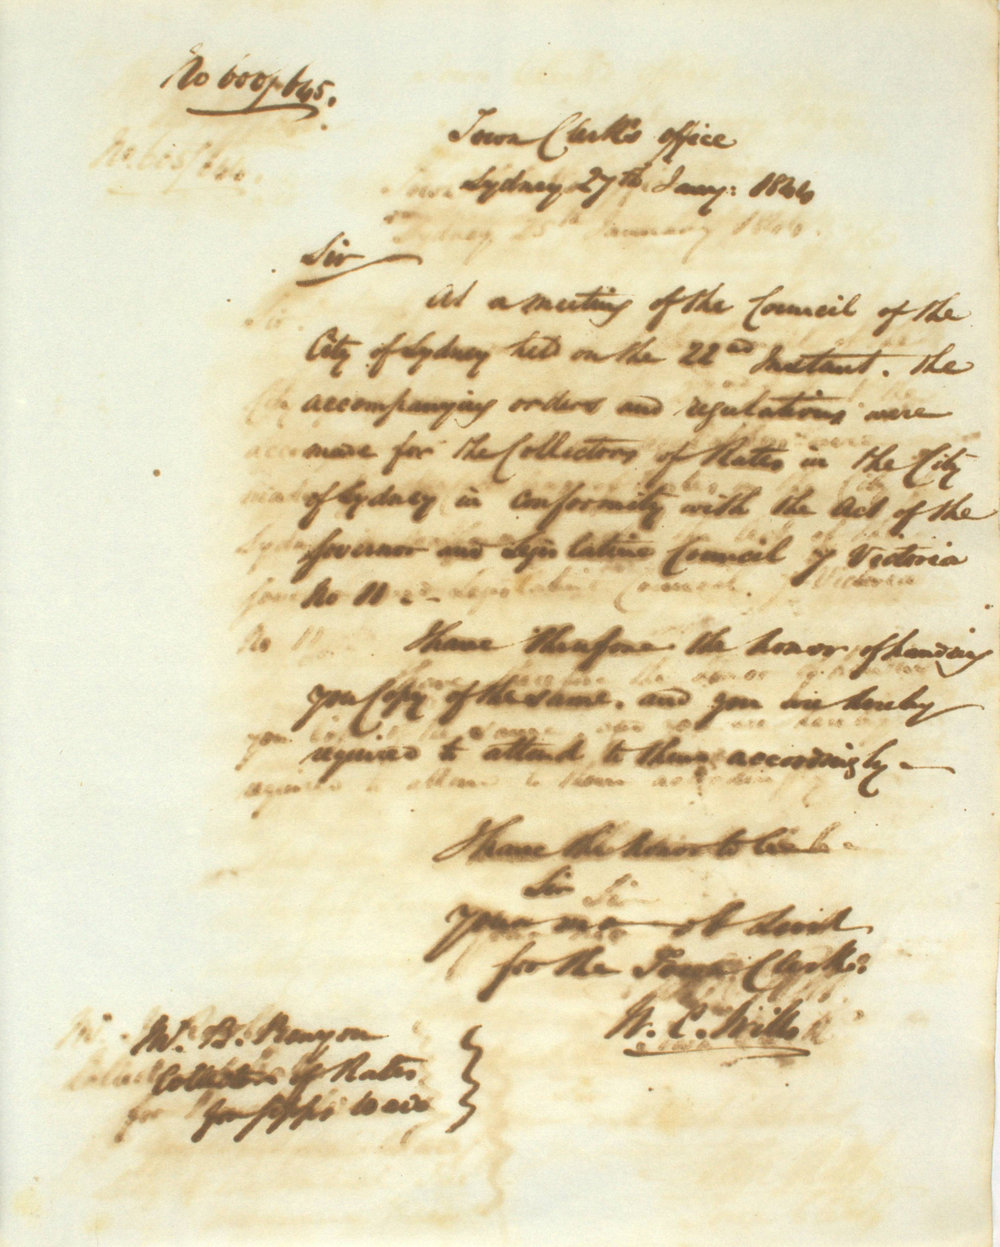 Town Clerk's office
Sydney 27th Jany: 1844
Sir
At a meeting of the Council of the
City of Sydney held on the 22nd Instant. the
accompanying orders and regulations were
made for the Collectors of Rates in the City
of Sydney in conformity with the Act of the
Governor and Legislative Council 7 Victoria
No 11 . -
I have therefore the honor of handing
you Copy of the same. and you are hereby
required to attend to them accordingly -
I have the honor to be
Sir
your mo ob Servt
for the Town Clerk:
W. C. Wills
Mr. B.
Collector of Rates
for Gipps Ward